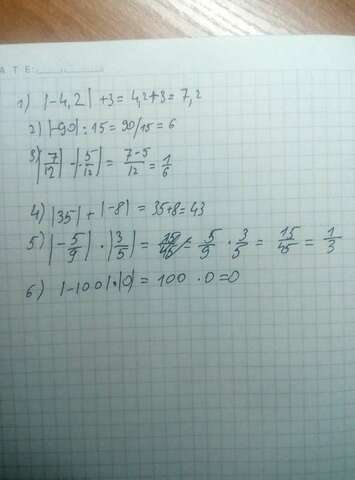 ATE:
1) |-4,2| +3 = 4,2+3 = 7,2
2) |-90| : 15 = 90/15 = 6
3) |7/12| - |-5/12| = 7-5/12 = 1/6
4) |35| + |-8| = 35+8 = 43
5) |-5/9| · |3/5| = 15/45 = 5/9 · 3/5 = 15/45 = 1/3
6) |-100| · |0| = 100 · 0 = 0